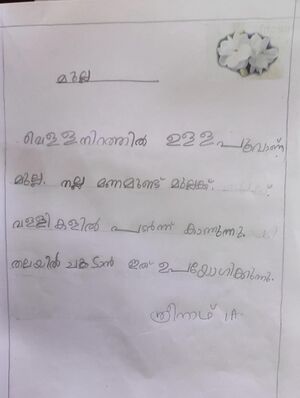 മുല്ല
വെള്ളനിറത്തിൽ ഉള്ള പൂവാണ്
മുല്ല. നല്ല മണമുണ്ട് മുല്ലക്ക്.
വള്ളികളിൽ പടർന്ന് കാണുന്നു.
തലയിൽ ചൂടാൻ ഇത് ഉപയോഗിക്കുന്നു.
ശ്രീനാഥ് 1A